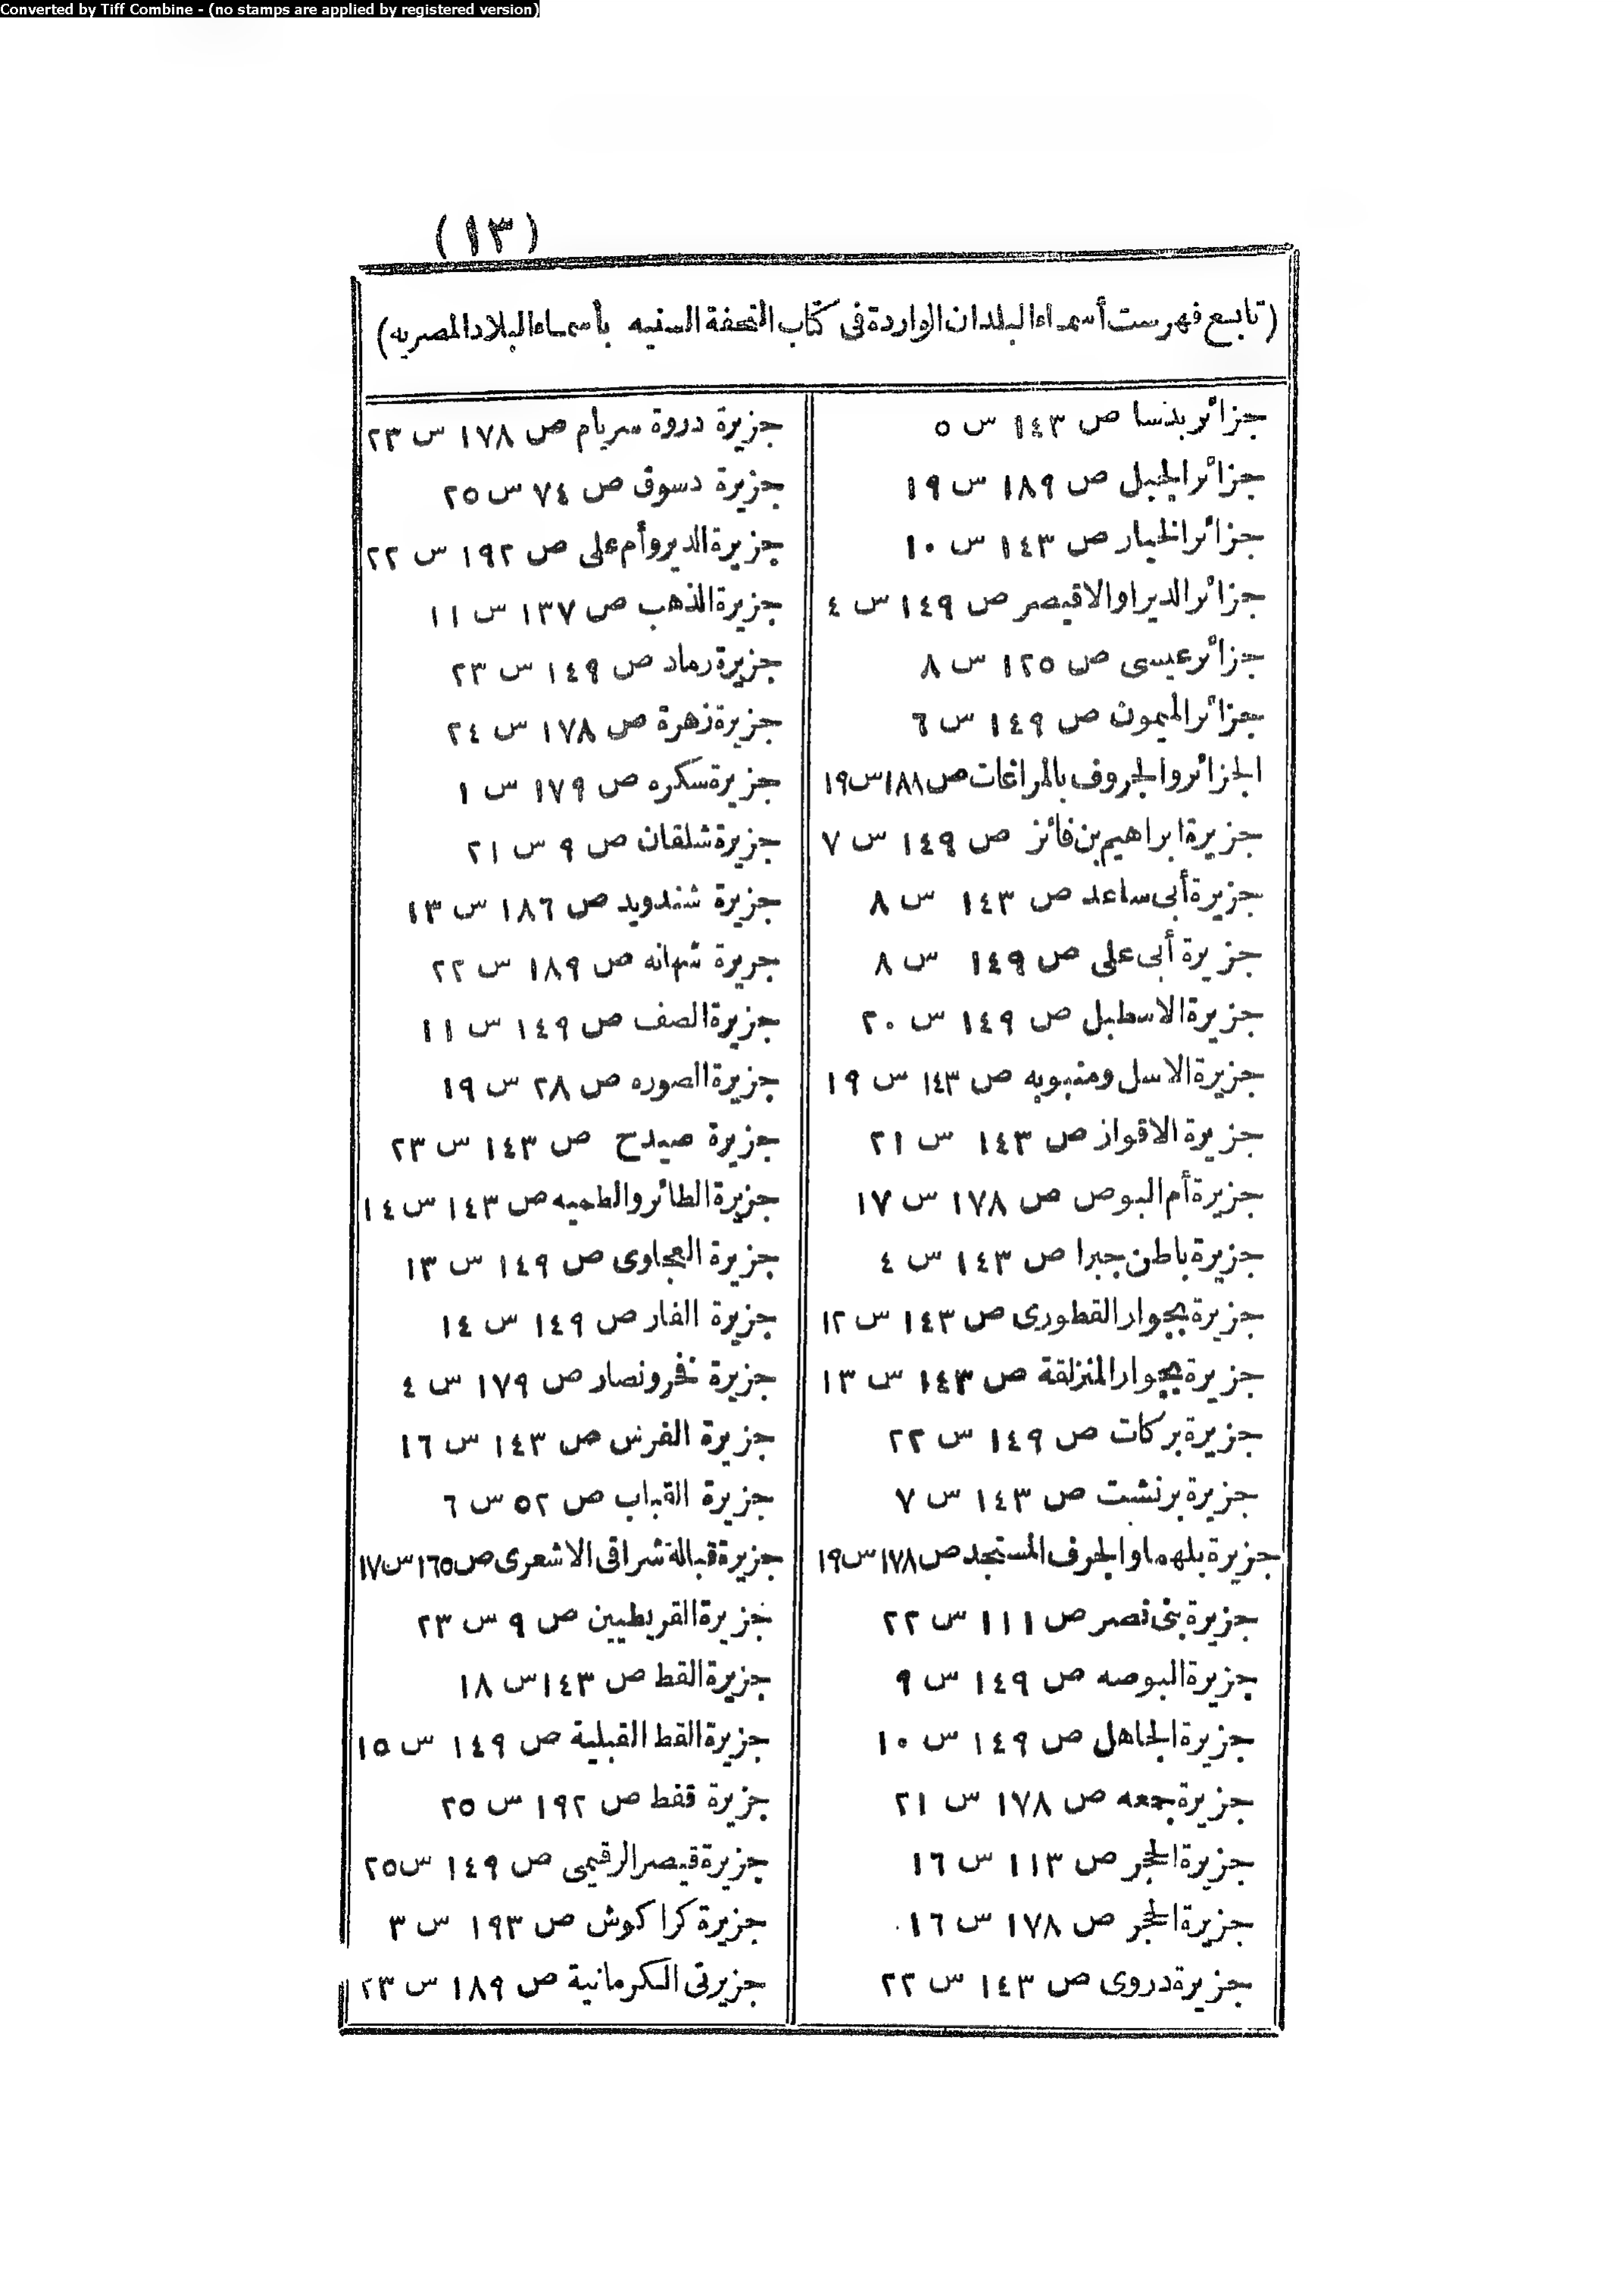 Converted by Tiff Combine - (no stamps are applied by registered version)
(١٣)
(تابع فهرست أسماء البلدان الواردة فى كتاب التحفة السنيه بأسماء البلاد المصريه)
جزائر بنسا ص ١٤٣ س ٥
جزائر الجبل ص ١٨٩ س ١٩
جزائر الخيار ص ١٤٣ س ١٠
جزائر الديراوالاقيصر ص ١٤٩ س ٤
جزائر عيسى ص ١٢٥ س ٨
جزائر الميمون ص ١٤٩ س ٦
الجزائر والجروف بالمراغات ص ١٨٨ س ١٩
جزيرة ابراهيم بن فائز ص ١٤٩ س ٧
جزيرة أبى ساعد ص ١٤٣ س ٨
جزيرة أبى على ص ١٤٩ س ٨
جزيرة الاسطبل ص ١٤٩ س ٢٠
جزيرة الاسل ومنبوبه ص ١٤٣ س ١٩
جزيرة الاقواز ص ١٤٣ س ٢١
جزيرة أم البوص ص ١٧٨ س ١٧
جزيرة باطن جبرا ص ١٤٣ س ٤
جزيرة بجوار القطورى ص ١٤٣ س ١٢
جزيرة بجوار المنزلقة ص ١٤٣ س ١٣
جزيرة بركات ص ١٤٩ س ٢٢
جزيرة برنشت ص ١٤٣ س ٧
جزيرة بلهما والجرف المستجد ص ١٧٨ س ١٩
جزيرة بنى نصر ص ١١١ س ٢٢
جزيرة البوصه ص ١٤٩ س ٩
جزيرة الجاهل ص ١٤٩ س ١٠
جزيرة جمعه ص ١٧٨ س ٢١
جزيرة الحجر ص ١١٣ س ١٦
جزيرة الحجر ص ١٧٨ س ١٦
جزيرة دروى ص ١٤٣ س ٢٢
جزيرة دروة سريام ص ١٧٨ س ٢٣
جزيرة دسوق ص ٧٤ س ٢٥
جزيرة الدير وأم على ص ١٩٢ س ٢٢
جزيرة الذهب ص ١٣٧ س ١١
جزيرة رماد ص ١٤٩ س ٢٣
جزيرة زهرة ص ١٧٨ س ٢٤
جزيرة سكره ص ١٧٩ س ١
جزيرة شلقان ص ٩ س ٢١
جزيرة شندويد ص ١٨٦ س ١٣
جريرة شهانه ص ١٨٩ س ٢٢
جزيرة الصف ص ١٤٩ س ١١
جزيرة الصوره ص ٢٨ س ١٩
جزيرة صيدح ص ١٤٣ س ٢٣
جزيرة الطائر والطميه ص ١٤٣ س ١٤
جزيرة العجاوى ص ١٤٩ س ١٣
جزيرة الفار ص ١٤٩ س ١٤
جزيرة فخر ونصار ص ١٧٩ س ٤
جزيرة الفرس ص ١٤٣ س ١٦
جزيرة القباب ص ٥٢ س ٦
جزيرة قبالة شراقى الاشعرى ص ١٦٥ س ١٧
جزيرة القريطيين ص ٩ س ٢٣
جزيرة القط ص ١٤٣ س ١٨
جزيرة القط القبلية ص ١٤٩ س ١٥
جزيرة قفط ص ١٩٢ س ٢٥
جزيرة قيصر الرقيمى ص ١٤٩ س ٢٥
جزيرة كرا كوش ص ١٩٣ س ٣
جزيرتى الكرمانية ص ١٨٩ س ٢٣